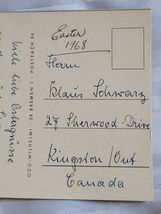 Easter
1968
Herrn
Klaus Schwarz
27 Sherwood-Drive
Kingston/Ont
Canada
Viele liebe Ostergrüsse
UDO WILHELMI · 28 BREMEN 1 · POSTFACH 96